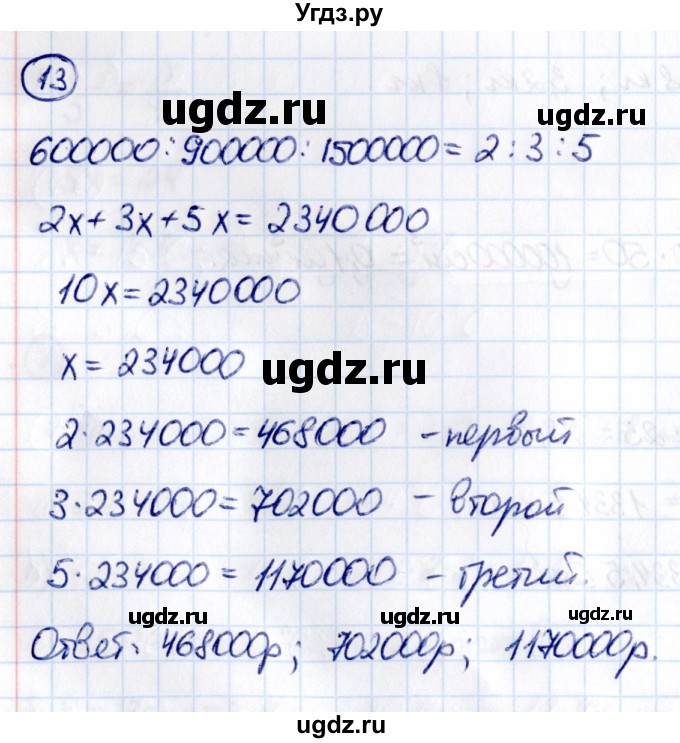 Угдз.ру
13
ugdz.ru ugdz.ru
600000 : 900000 : 1500000 = 2 : 3 : 5
2x + 3x + 5x = 2340000
10x = 2340000
ugdz.ru
x = 234000
2·234000 = 468000 - первый
3·234000 = 702000 - второй
5·234000 = 1170000 - третий.
ugdz.ru ugdz.ru
Ответ: 468000р; 702000р; 1170000р.
ugdz.ru ugdz.ru
ugdz.ru